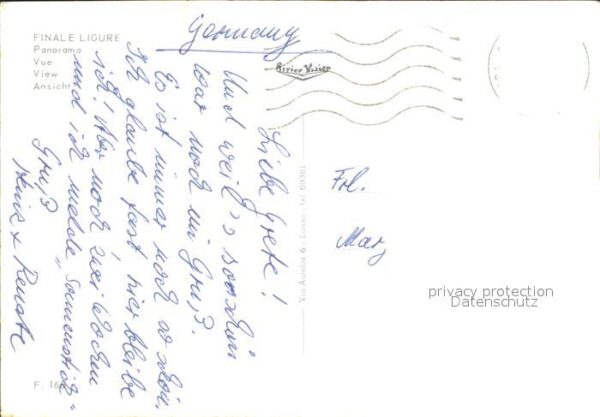 FINALE LIGURE
Panorama
Vue
View
Ansicht
Germany
Rivier Visier
Liebe Grete!
Und weil's so schön
war noch ein Gruß.
Es ist immer noch so schön.
Ich glaube fast hier bleibe
ich! Aber noch zwei Wochen
und ich melde „Sonnenstich"
Gruß
+ Renate
Via Aurelia 6 - Loano - Tel. 69361
Frl.
Mary
privacy protection
Datenschutz
F. 16